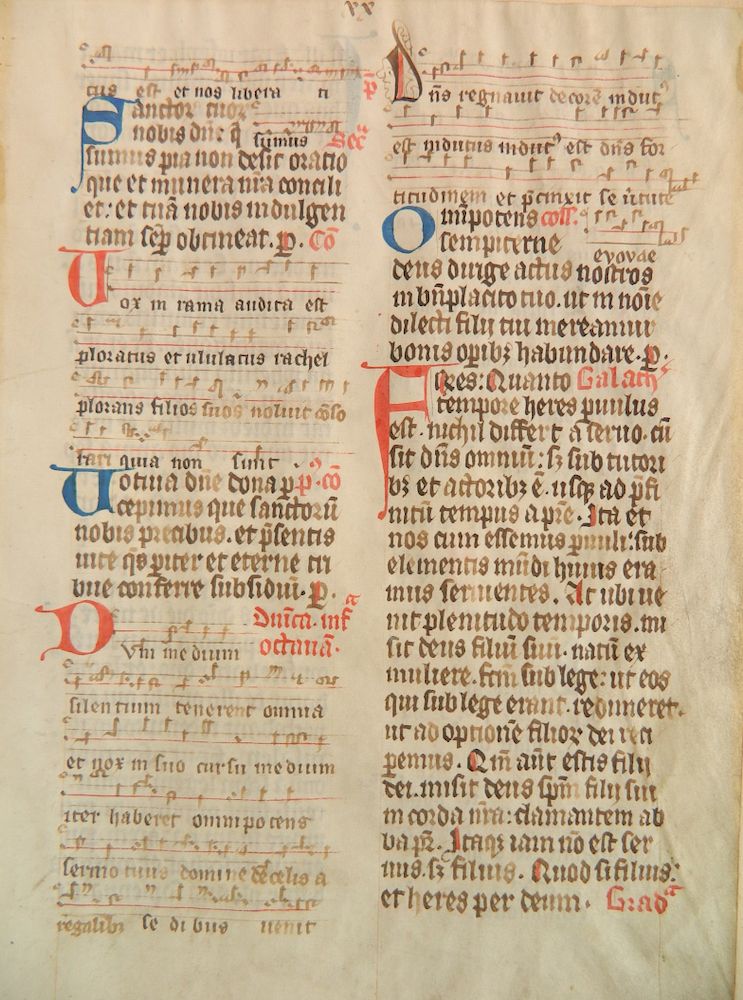 xx
tus est et nos libera ti
Sanctor tuor
nobis dne q̄ sumus Sec̄
sumus pia non desit oratio
que et munera nr̄a concili
et: et tuā nobis indulgen
tiam semp̄ obtineat. p̄. Cō
Vox in rama audita est
ploratus et ululatus rachel
plorans filios suos noluit cōso
lari quia non sunt. p̄ cō
Votiua dn̄e dona p̄
cepimus que sanctorū
nobis precibus. et p̄sentis
uite q̄s pariter et eterne tri
bue conferre subsidiū. p̄.
Dum̄ca. inf̄ra
octauā.
Dum medium
silentium tenerent omnia
et nox in suo cursu medium
iter haberet omnipotens
sermo tuus domine de celis a
regalibꝰ sedibus uenit
Dn̄s regnauit decorē indutꝰ
est indutus indutꝰ est dn̄s for
titudinem et p̄cinxit se uirtute
Omīpotens coll.
sempiterne evovae
deus dirige actus nostros
in bn̄placito tuo. ut in noīe
dilecti filij tui mereamur
bonis opībꝫ habundare. p̄.
Fr̄es: Quanto Galath̄
tempore heres paruulus
est. nichil differt a seruo. cū
sit dn̄s omniū: sꝫ sub tutori
bꝫ et actoribꝫ ē. usqꝫ ad p̄fi
nitū tempus a pr̄e. Ita et
nos cum essemus paruuli: sub
elementis mūdi huius era
mus seruientes. At ubi ue
nit plenitudo temporis. mi
sit deus filiū suū. natū ex
muliere. fc̄m sub lege: ut eos
qui sub lege erant. redimeret.
ut adoptionē filior dei reci
peremus. Qm̄ aūt estis filij
dei. misit deus sp̄m filij sui
in corda nr̄a: clamantem ab
ba pr̄. Itaqꝫ iam nō est ser
uus. sꝫ filius. Quod si filius:
et heres per deum. Grad̄